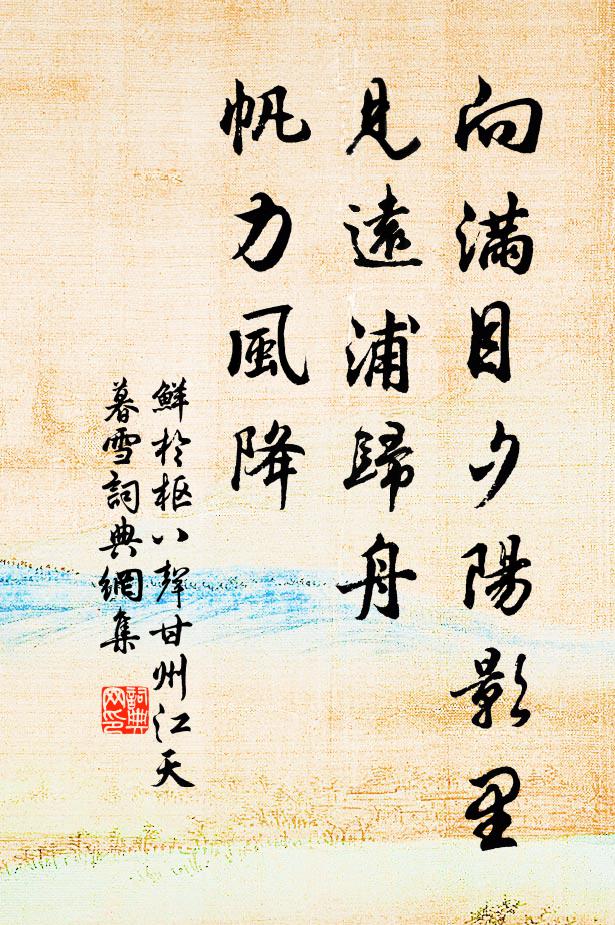 向滿目夕陽影里
見遠浦歸舟
帆力風降
鮮於枢八聲甘州江天
暮雪詞典網集
詞典
网印